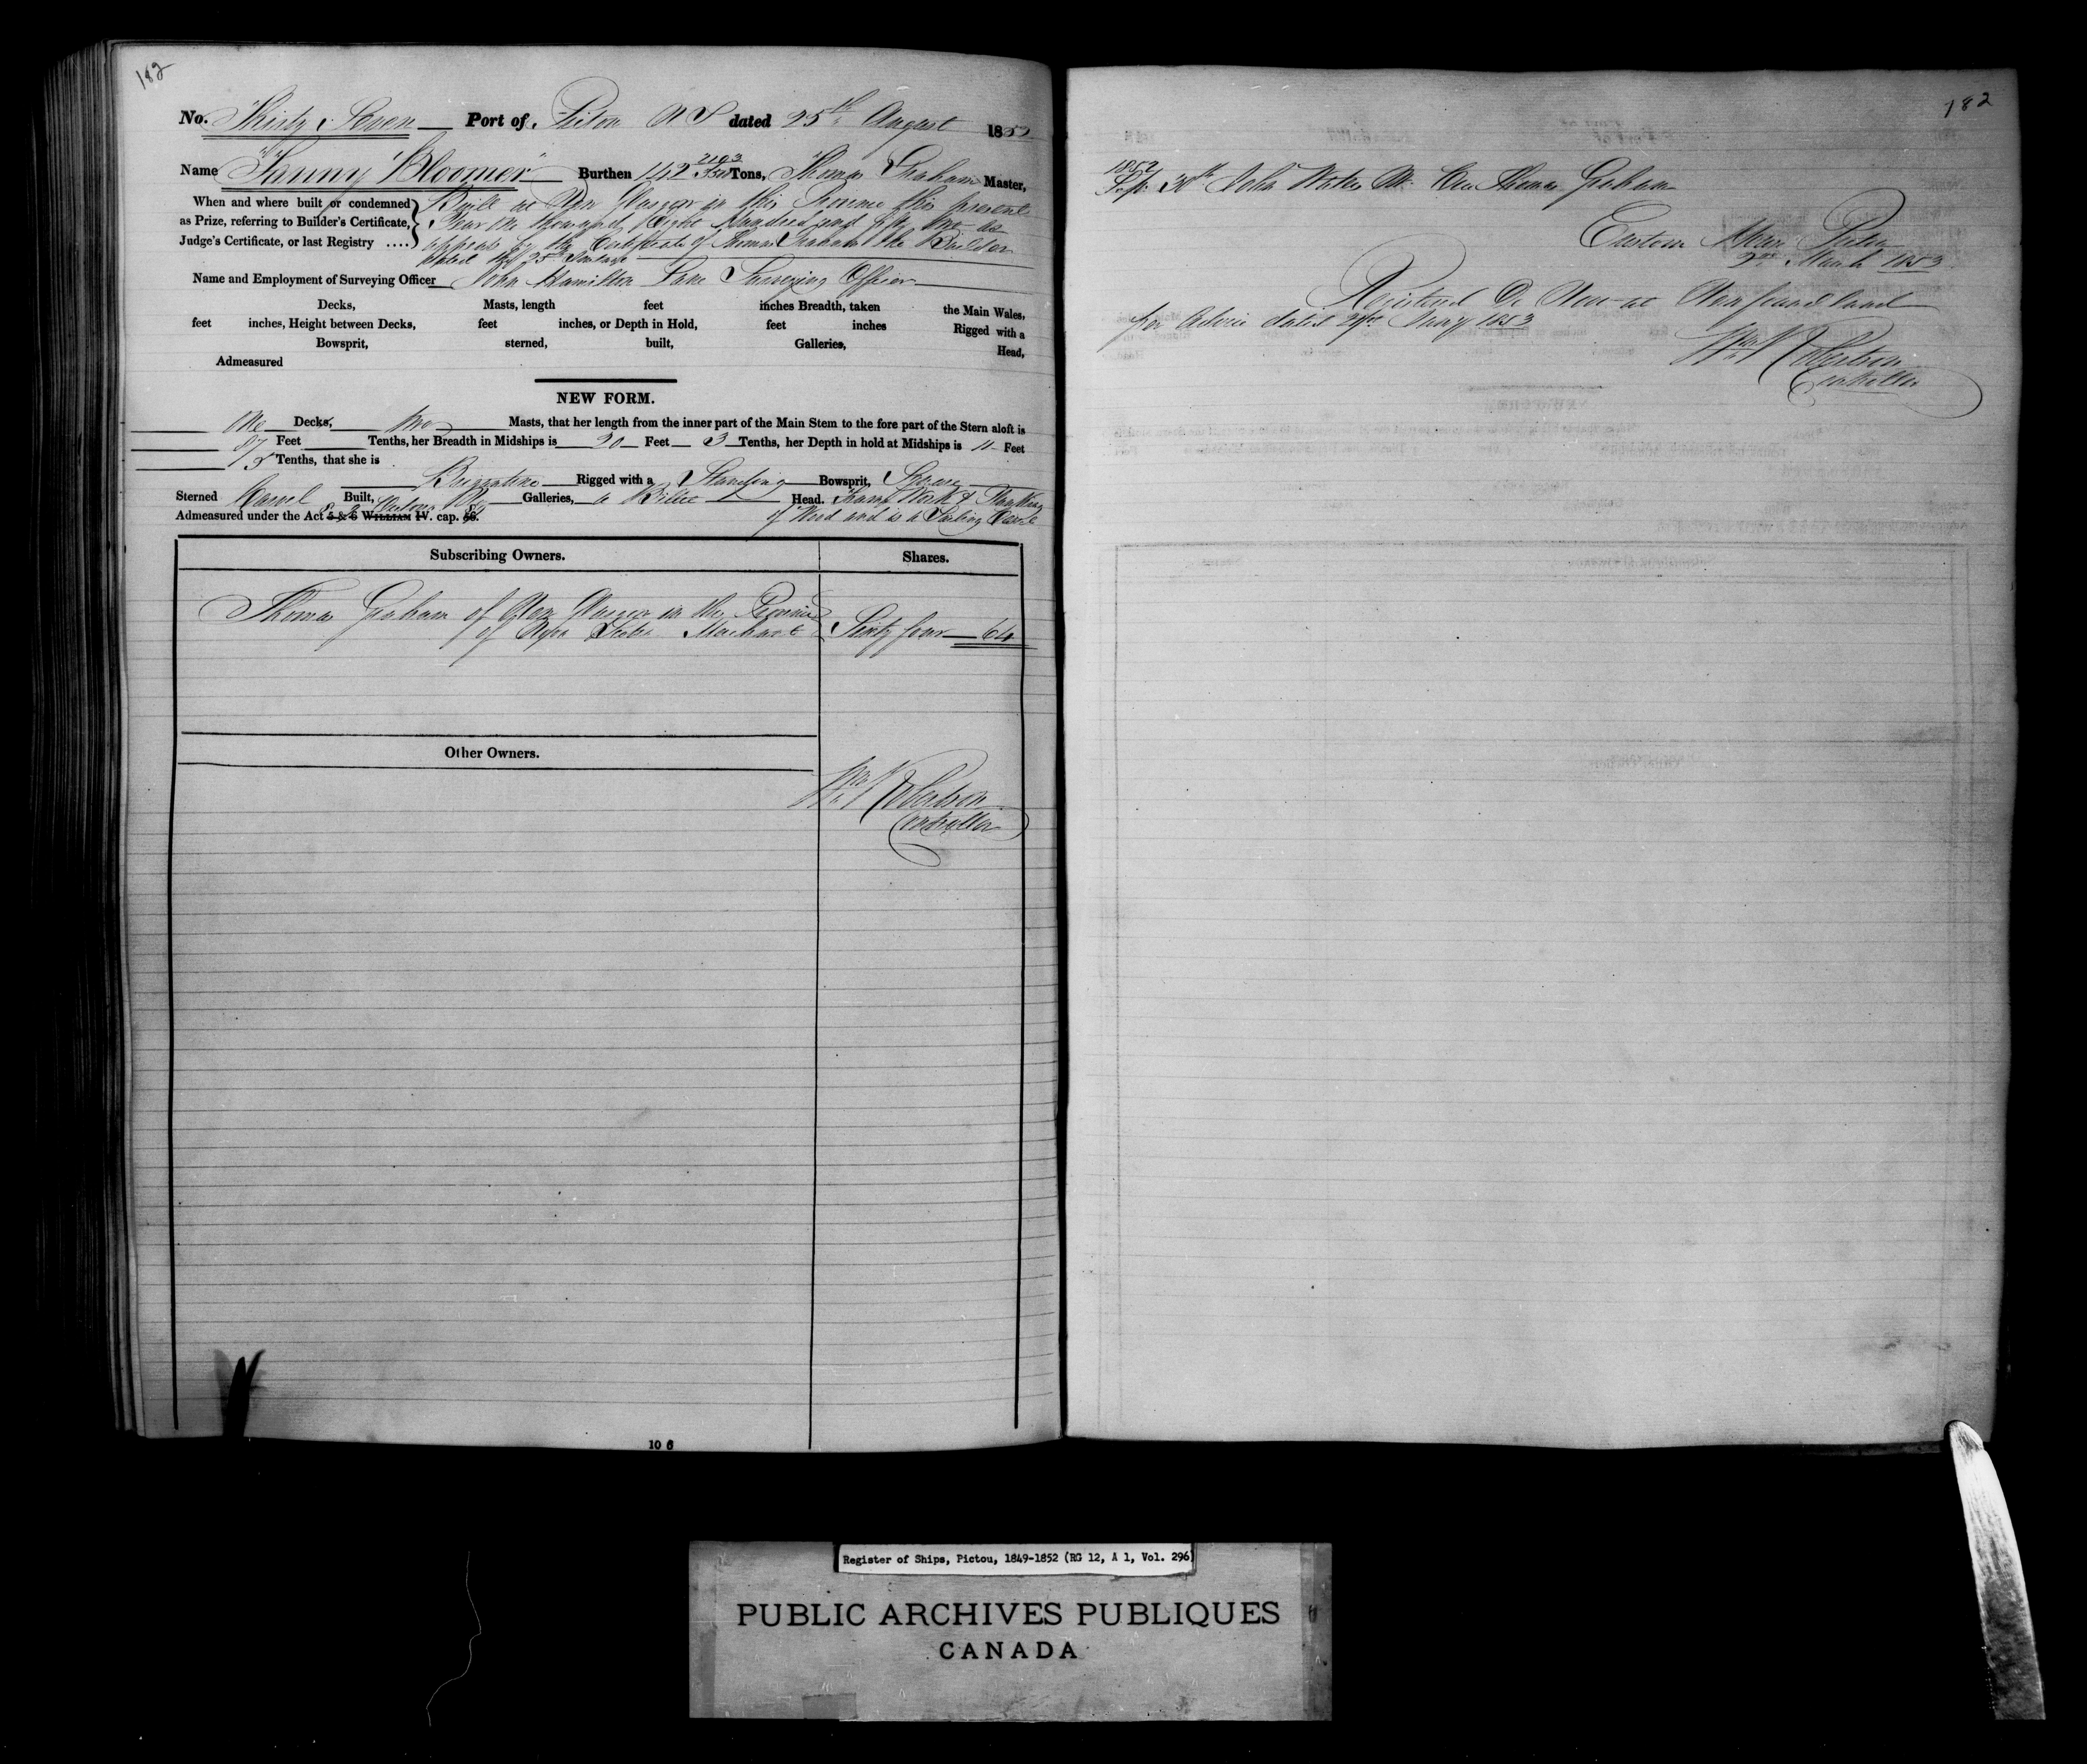 182
No. Thirty Seven Port of Pictou N S dated 25th August 1852
Name "Fanny Bloomer" Burthen 142 2103/3500 Tons, Thomas Graham Master,
When and where built or condemned as Prize, referring to Builder's Certificate, Judge's Certificate, or last Registry ....
Built at New Glasgow in this Province this present
Year One thousand Eight Hundred and fifty two as
appears by the Certificate of Thomas Graham the Builder
dated the 25th Instant
Name and Employment of Surveying Officer John Hamilton Lane Surveying Officer
Decks, Masts, length feet inches Breadth, taken the Main Wales,
feet inches, Height between Decks, feet inches, or Depth in Hold, feet inches Rigged with a
Bowsprit, sterned, built, Galleries, Head,
Admeasured
NEW FORM.
One Decks, two Masts, that her length from the inner part of the Main Stem to the fore part of the Stern aloft is
87 Feet Tenths, her Breadth in Midships is 20 Feet 3 Tenths, her Depth in hold at Midships is 11 Feet
5 Tenths, that she is
Brigantine Rigged with a Standing Bowsprit, Square
Sterned Carvel Built, No Galleries, a Billet Head. Frame Work & Planking
Admeasured under the Act 5 & 6 WILLIAM IV. cap. 56. 8 & 9 Victoria 89 of Wood and is a Sailing Vessel
Subscribing Owners. Shares.
Thomas Graham of New Glasgow in the Province
of Nova Scotia Merchant Sixty four 64
Other Owners.
Wm N Robertson
Controller
10 6
182
1852
Sept. 30th John Waters Mr. vice Thomas Graham
Custom House Pictou
2nd March 1853
Registered De Novo at Newfoundland
per Advice dated Jany 1853
Wm N Robertson
Controller
Register of Ships, Pictou, 1849-1852 (RG 12, A 1, Vol. 296)
PUBLIC ARCHIVES PUBLIQUES
CANADA